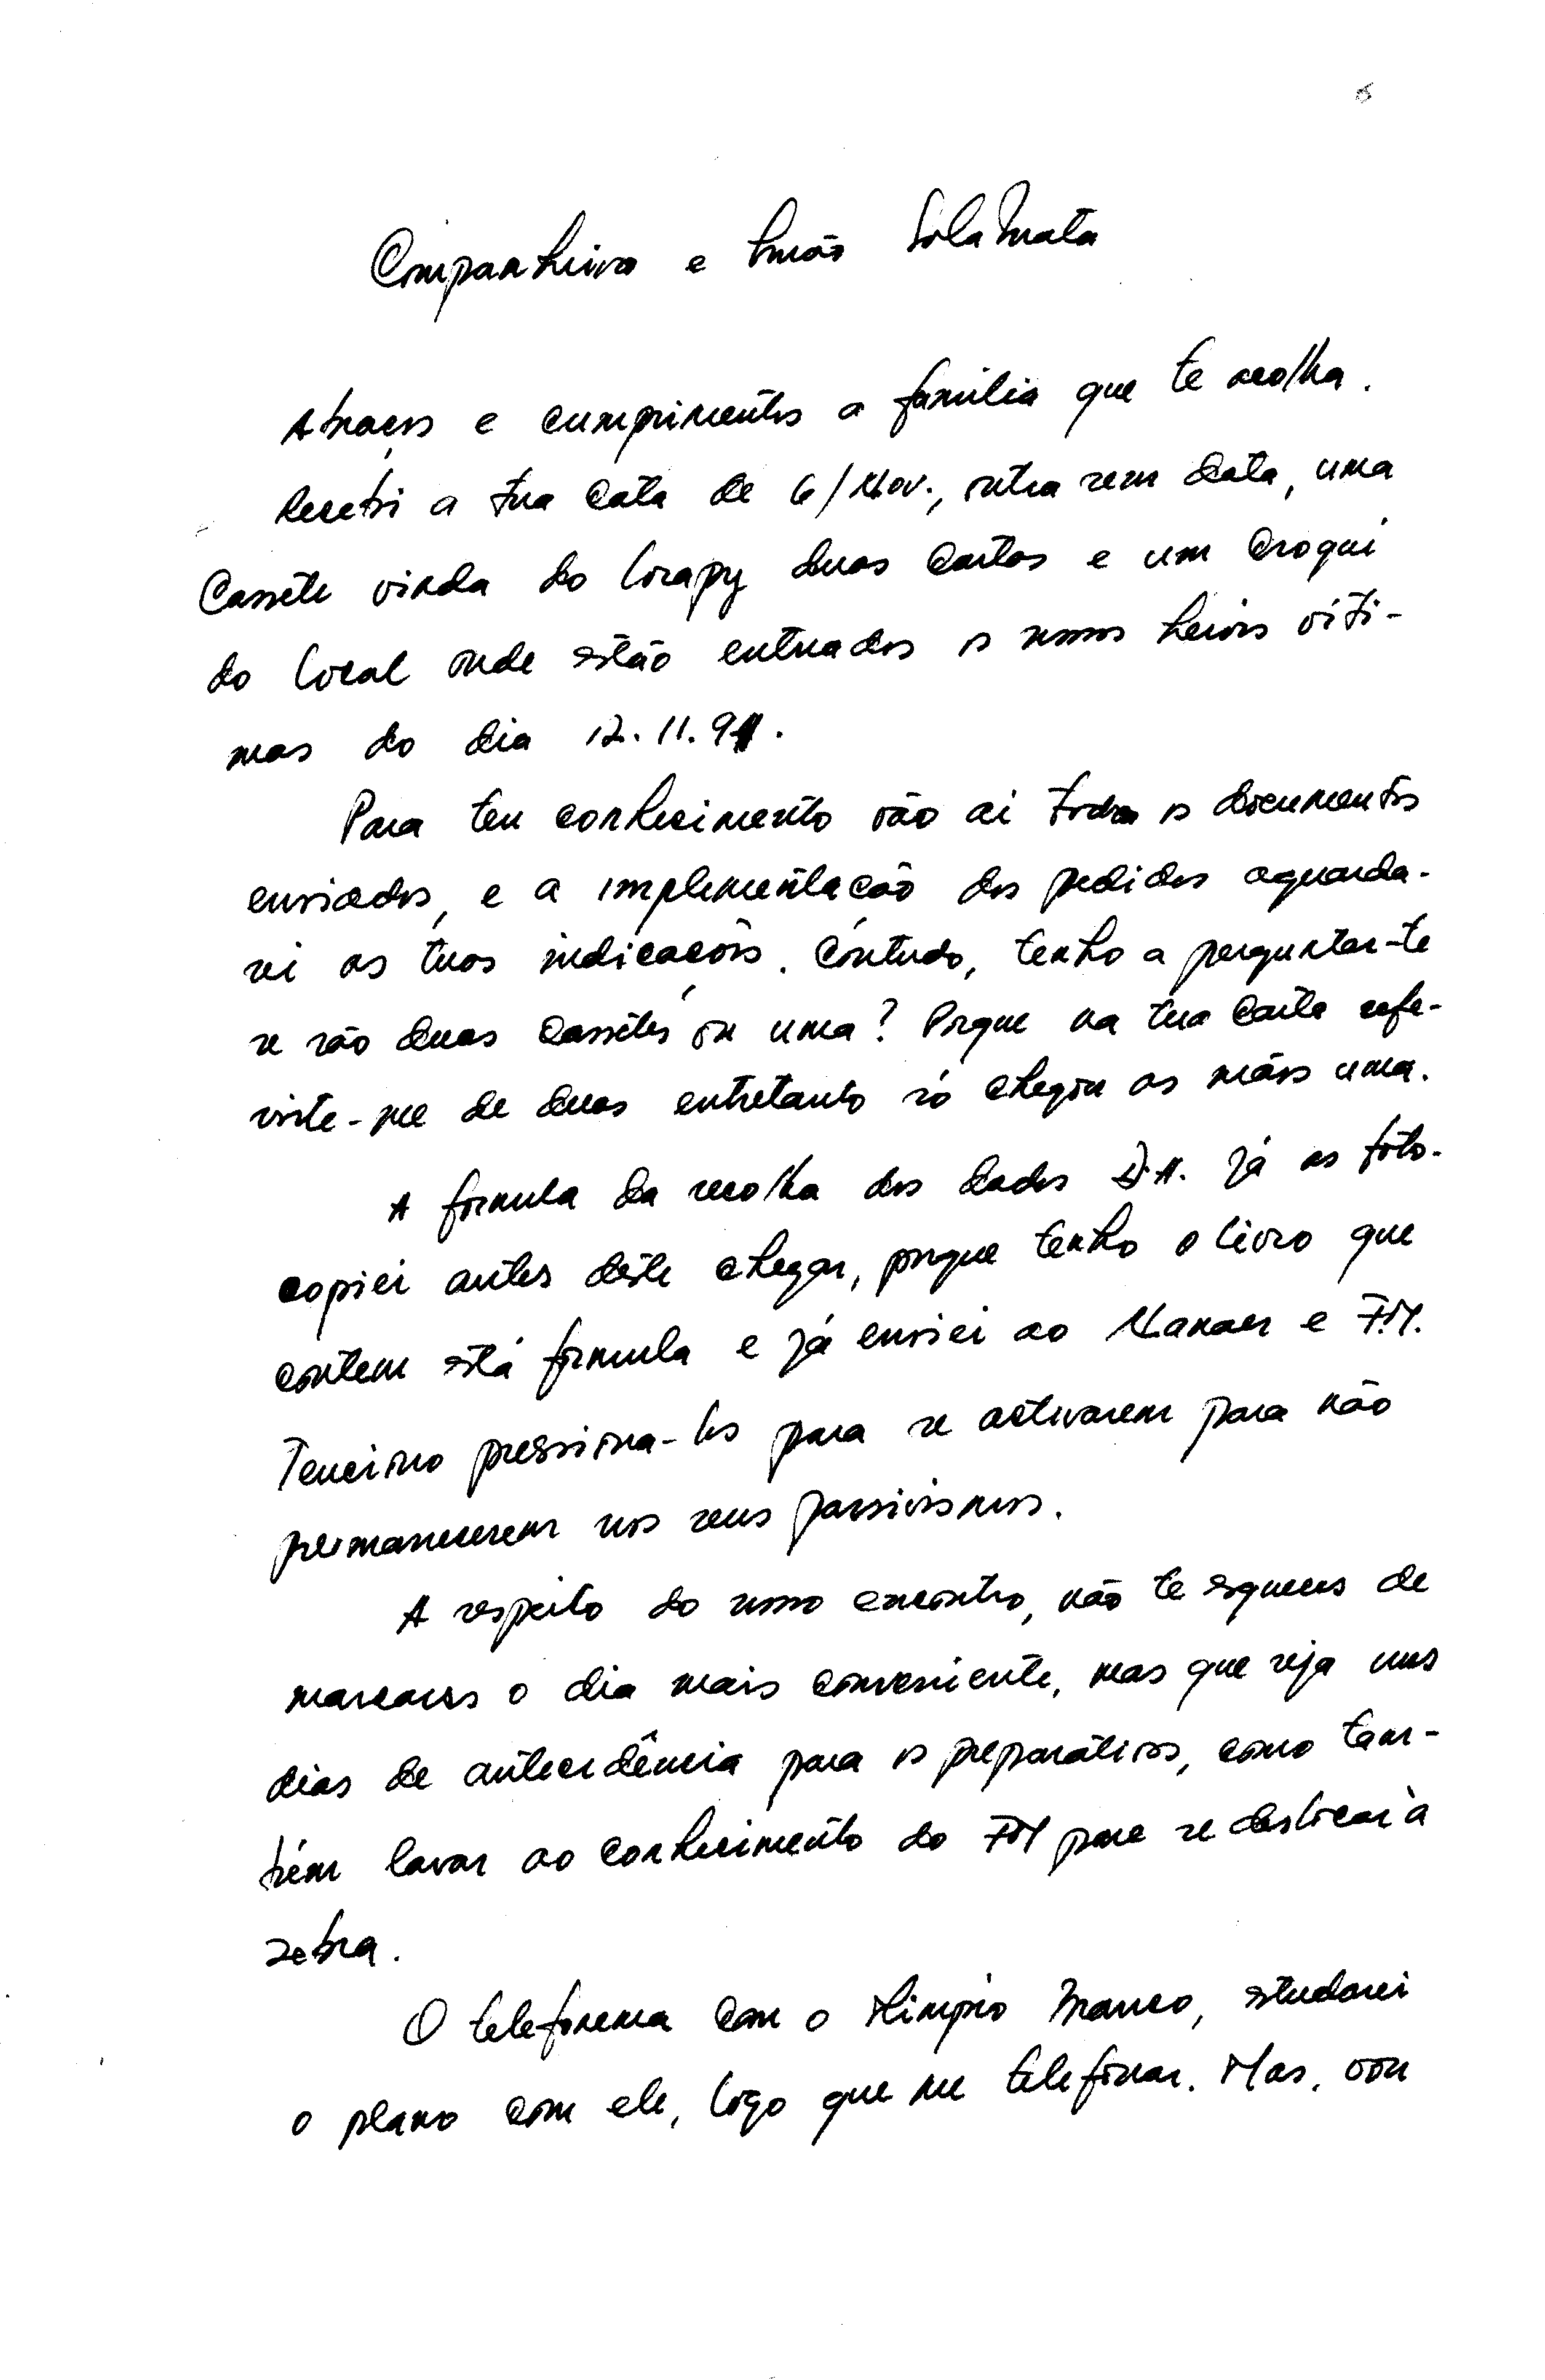 Companheiro e Irmão Sola Mata
Abraços e cumprimentos a família que te recolha.
Recebi a tua cata de 6/Nov., outra sem data, uma
Cassête vinda do Lorapy duas Cartas e um Croqui
do local onde estão entrrados os nossos heróis víti-
mas do dia 12.11.91.
Para teu conhecimento vão aí todos os documentos
enviados, e a implementação dos pedidos aguarda-
rei as tuas indicações. Contudo, tenho a perguntar-te
se são duas Cassêtes ou uma? Porque na tua Carta refe-
riste-me de duas entretanto só chegou as mãos uma.
A fórmula da recolha dos dados D.H. já as foto-
copiei antes deste chegar, porque tenho o livro que
contem está fórmula e já enviei ao Nanaer e F.M.
Tenciono pressiona-los para se activarem para não
permanecerem nos seus passivismos.
A respeito do nosso encontro, não te esqueces de
marcares o dia mais conveniente, mas que seja uns
dias de antecedência para os preparativos, como tam-
bém lavar ao conhecimento do FM para se deslocar à
zebra.
O telefonema com o Olimpio Branco, estudarei
o plano com ele, logo que me telefonar. Mas, vou